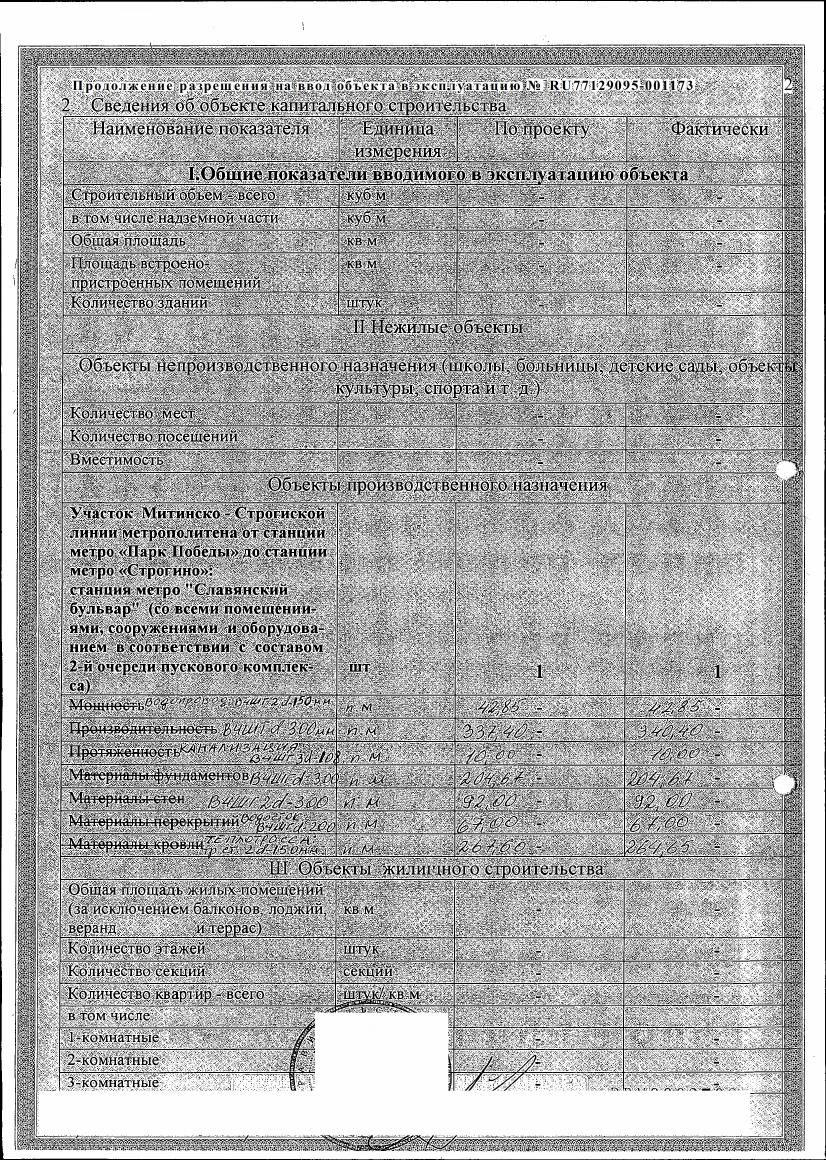 Продолжение разрешения на ввод объекта в эксплуатацию № RU77129095-001173 2
2. Сведения об объекте капитального строительства
Наименование показателя Единица измерения По проекту Фактически
I.Общие показатели вводимого в эксплуатацию объекта
Строительный объем - всего куб.м - -
в том числе надземной части куб.м - -
Общая площадь кв.м - -
Площадь встроено-
пристроенных помещений кв.м - -
Количество зданий штук - -
II Нежилые объекты
Объекты непроизводственного назначения (школы, больницы, детские сады, объекты
культуры, спорта и т. д.)
Количество мест - -
Количество посещений - -
Вместимость - -
Объекты производственного назначения
Участок Митинско - Строгиской
линии метрополитена от станции
метро «Парк Победы» до станции
метро «Строгино»:
станция метро "Славянский
бульвар" (со всеми помещени-
ями, сооружениями и оборудова-
нием в соответствии с составом
2-й очереди пускового комплек-
са) шт 1 1
Мощность водопровод ВЧШГ 2d-150мм п.м 42,85 - 42,85 -
Производительность ВЧШГ d-300мм п.м 337,40 - 340,40 -
Протяженность КАНАЛИЗАЦИЯ ВЧШГ 3d-108 п.м 10,00 - 10,00 -
Материалы фундаментов ВЧШГ d-300 п.м 204,67 - 204,67 -
Материалы стен ВЧШГ 2d-300 п.м 92,00 - 92,00 -
Материалы перекрытий ВОДОСТОК ВЧШГ d-200 п.м 67,00 - 67,00 -
Материалы кровли ТЕПЛОТРАССА тр.ст. 2d-150мм п.м 267,60 - 264,65 -
III. Объекты жилищного строительства
Общая площадь жилых помещений
(за исключением балконов, лоджий, кв.м - -
веранд и террас)
Количество этажей штук - -
Количество секций секций - -
Количество квартир - всего штук/ кв.м - -
в том числе
1-комнатные - -
2-комнатные - -
3-комнатные - -